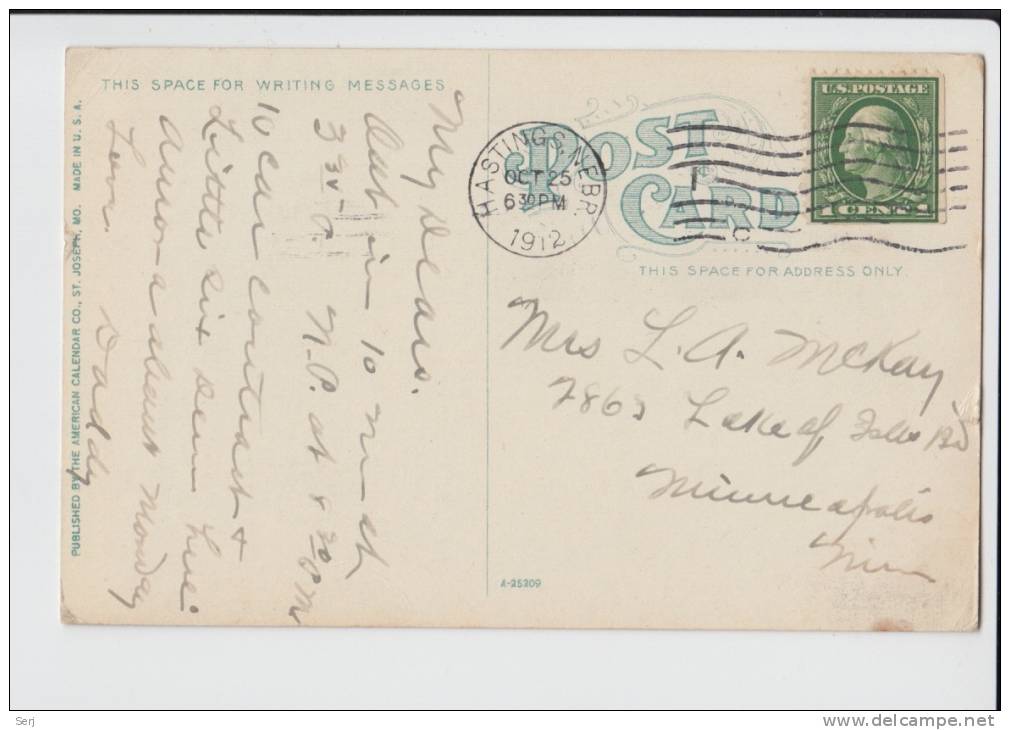 THIS SPACE FOR WRITING MESSAGES
My dears.
Out in 10 m at
3 30 P. N.P. at 8 30 PM
10 car contract +
Little six
about Monday
Love Daddy
PUBLISHED BY THE AMERICAN CALENDAR CO., ST. JOSEPH, MO. MADE IN U.S.A.
POST CARD
HASTINGS, NEBR.
OCT 25
6 30 PM
1912
U.S. POSTAGE
1 CENT 1
THIS SPACE FOR ADDRESS ONLY.
Mrs L. A. McKay
Lake of Isles Bd
Minneapolis
Minn
A-25209
Serj
www.delcampe.net